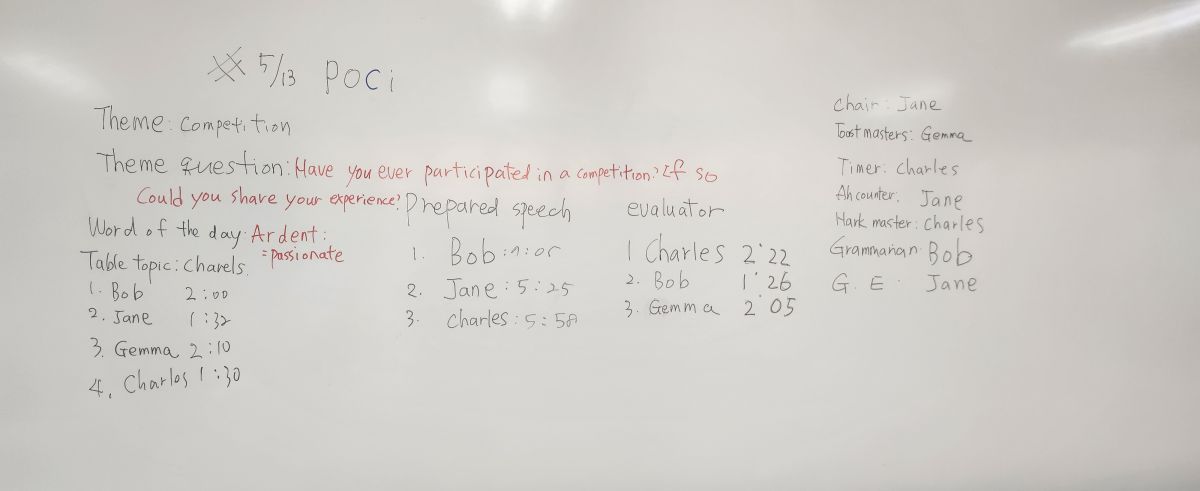 5/13 POCi
Theme: Competition
Theme question: Have you ever participated in a competition? If so
Could you share your experience?
Word of the day: Ardent:
=passionate
Table topic: Charels.
1. Bob 2:00
2. Jane 1:32
3. Gemma 2:10
4. Charles 1:30
Prepared speech
1. Bob
2. Jane: 5:25
3. Charles: 5:58
evaluator
1 Charles 2'22
2. Bob 1'26
3. Gemma 2'05
Chair: Jane
Toastmasters: Gemma
Timer: Charles
Ah counter: Jane
Hark master: Charles
Grammarian: Bob
G. E: Jane